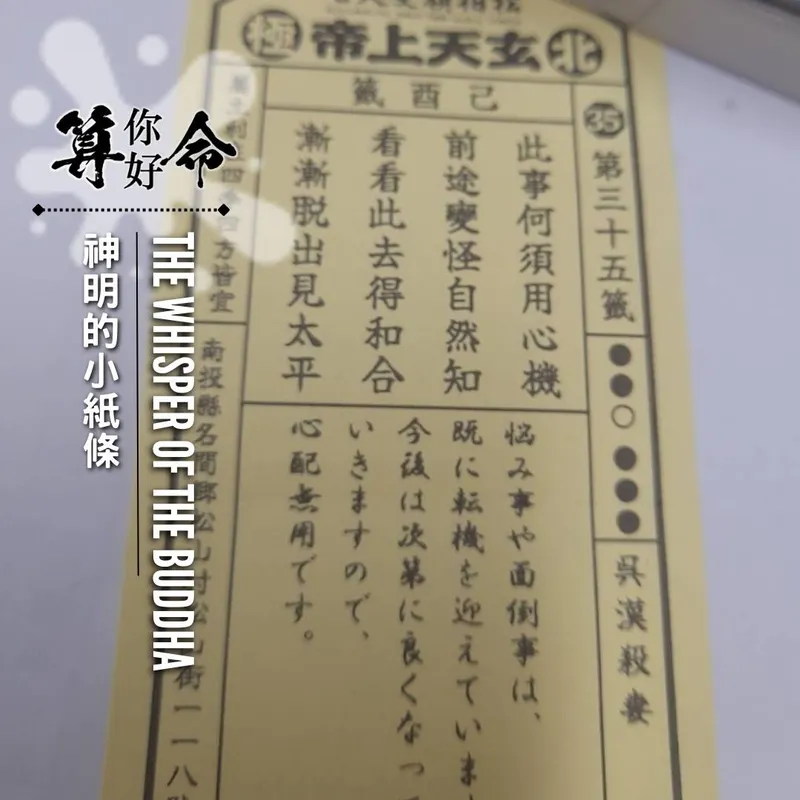 北 玄天上帝 極
己酉籤
35
第三十五籤
吳漢殺妻
此事何須用心機
前途變怪自然知
看看此去得和合
漸漸脫出見太平
悩み事や面倒事は、
既に転機を迎えていま
今後は次第に良くなっ
いきますので、
心配無用です。
四方皆宜
南投縣名間鄉松山村松山街一一八
算你好命
神明的小紙條
THE WHISPER OF THE BUDDHA